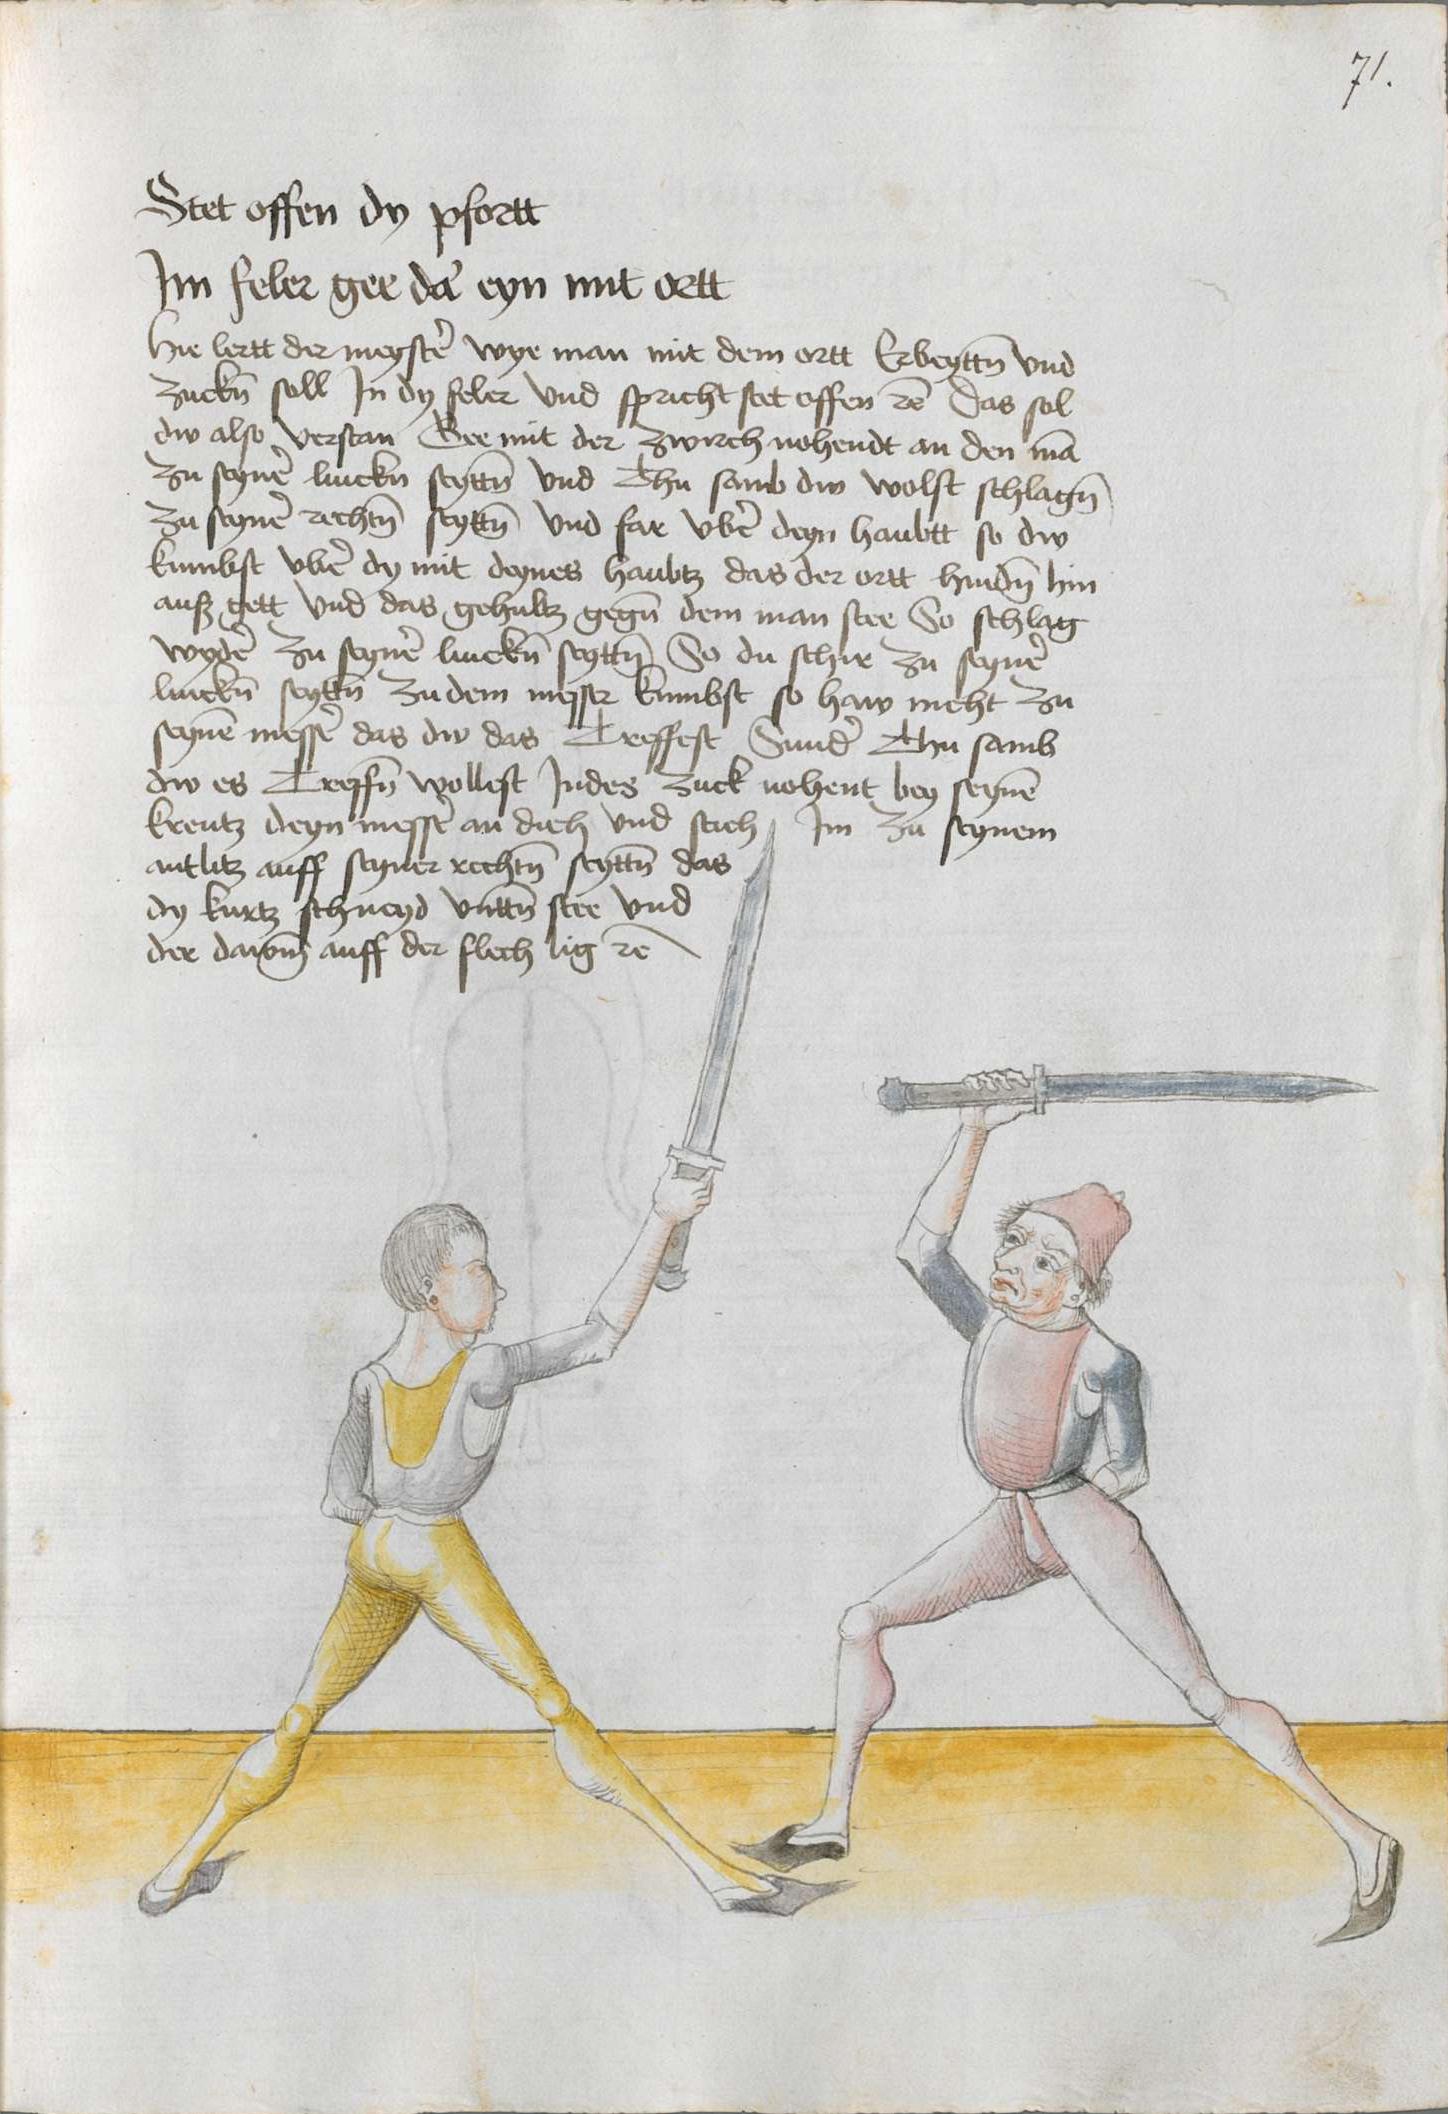 71.
Stet offen dy pfortt
Im feler gee da᷑ eyn mit ortt
Hie lertt der meyste᷑ wye man mit dem ortt Erbeyttn̄ vnd
zuckn̄ soll In dy feler vnd spricht stet offen ꝛc̄ Das sol
dw also verstan Gee mit der zwirch nohendt an den mā
zu seyne᷑ linckn seyttn̄ vnd Thu samb dw wolst schlagn̄
zu seyne᷑ rechtn̄ seyttn̄ vnd far vbe᷑ deyn haubtt so dw
kumbst vbe᷑ dy mit deynes haubtz das der ortt hindn̄ hin
auß gett vnd das gehultz gegn̄ dem man stee So schlag
wyde᷑ zu seyne᷑ linckn̄ seyttn̄ So du schir zu seyne᷑
linckn̄ seyttn̄ zu dem messer kumbst so haw nicht zu
seynē messe᷑ das dw das Treffest Sunde᷑ Thu samb
dw es Treffn̄ wollest Indes zuck nohent bey seynē
kreutz deyn messe᷑ an dich vnd stich Im zu seynem
antlitz auff seyner rechtn̄ seyttn̄ das
dy kurtz schneyd vnttn̄ stee vnd
der dawm̄ auff der flech lig ꝛc̄